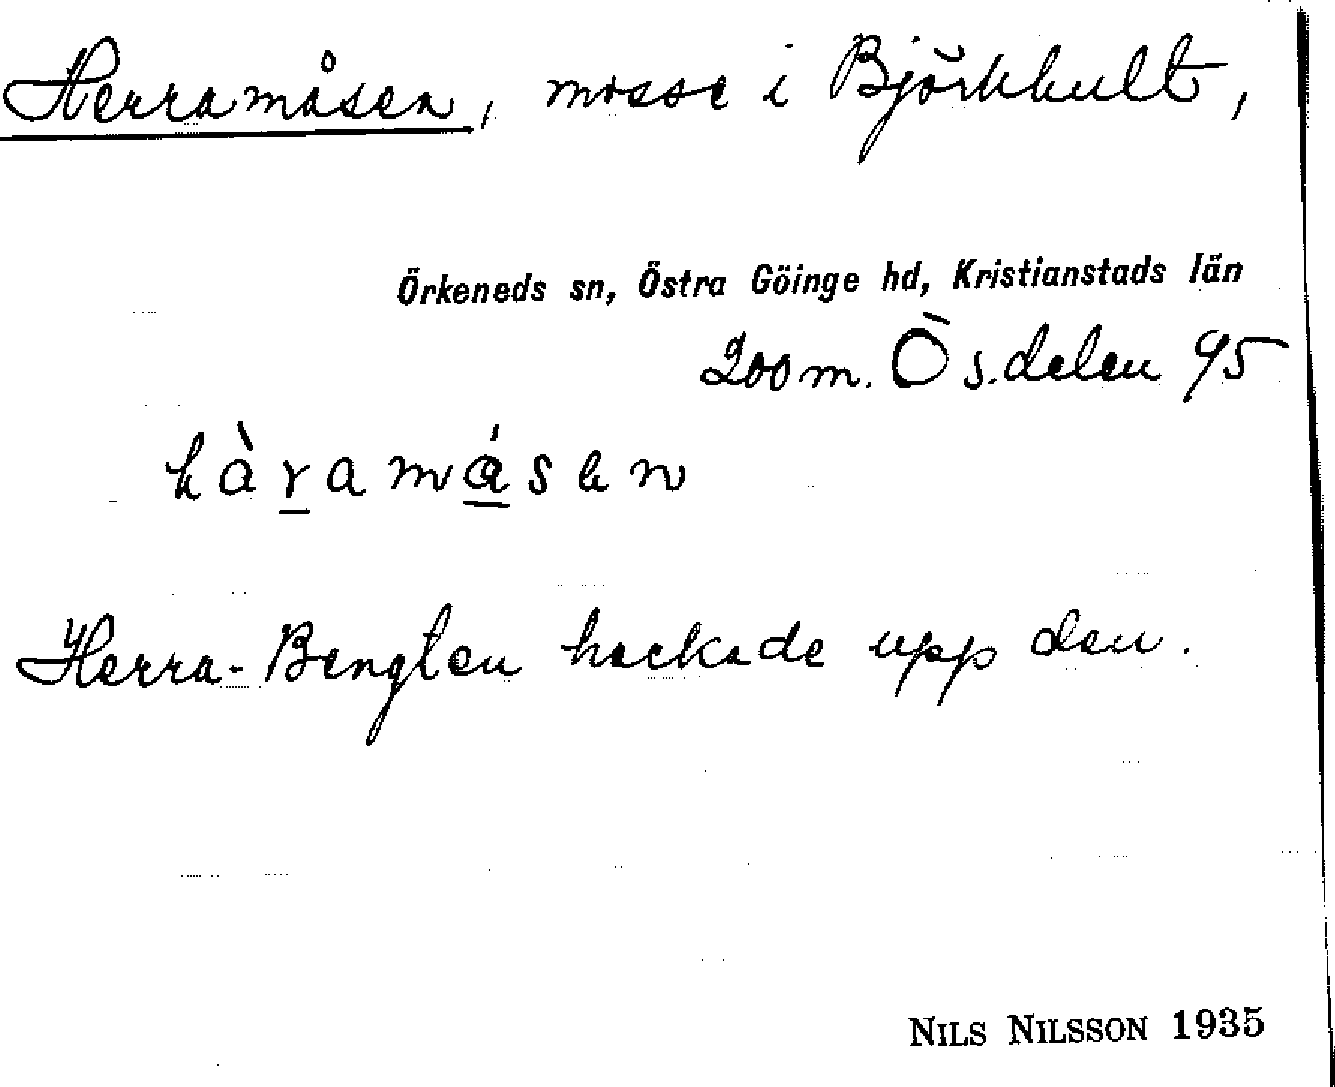 Herramåsen, mosse i Björkhult,
Örkeneds sn, Östra Göinge hd, Kristianstads län
200 m. Ö s. delen 95
hàramásen
Herra-Bengten hackade upp den.
NILS NILSSON 1935